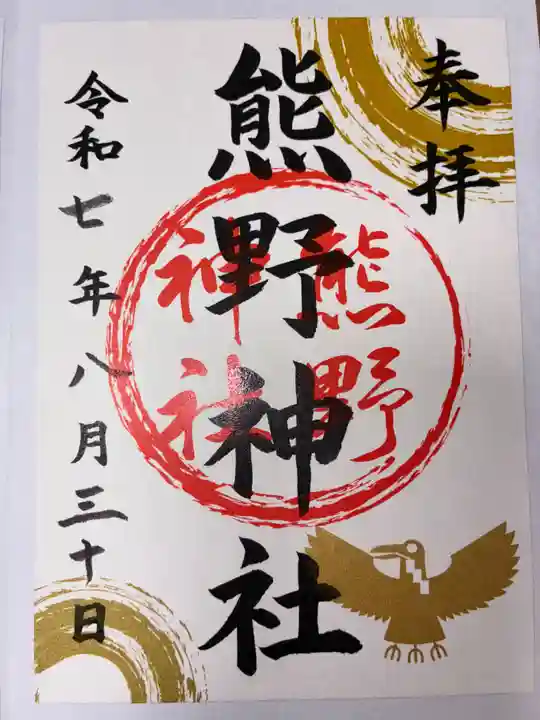 奉拝
熊野神社
熊野
神社
令和七年八月三十日